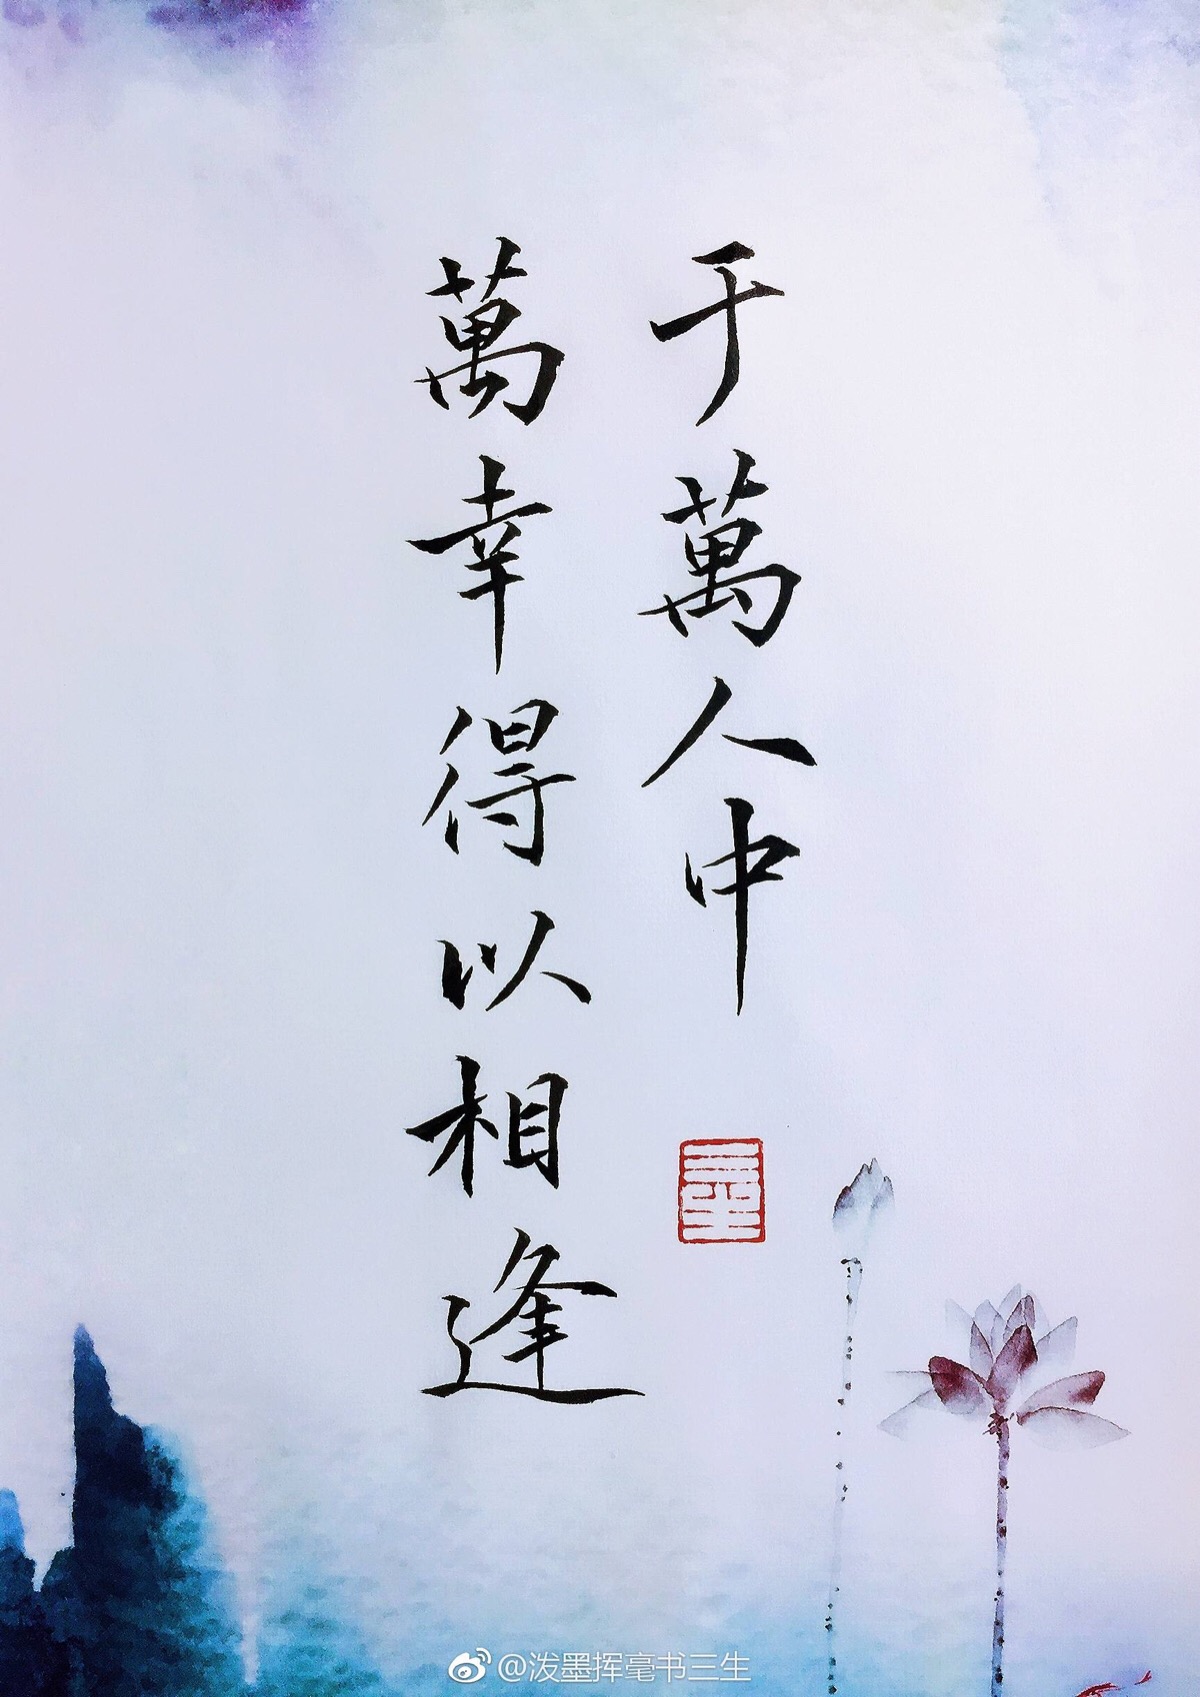 于萬人中
萬幸得以相逢
三生
@泼墨挥毫书三生